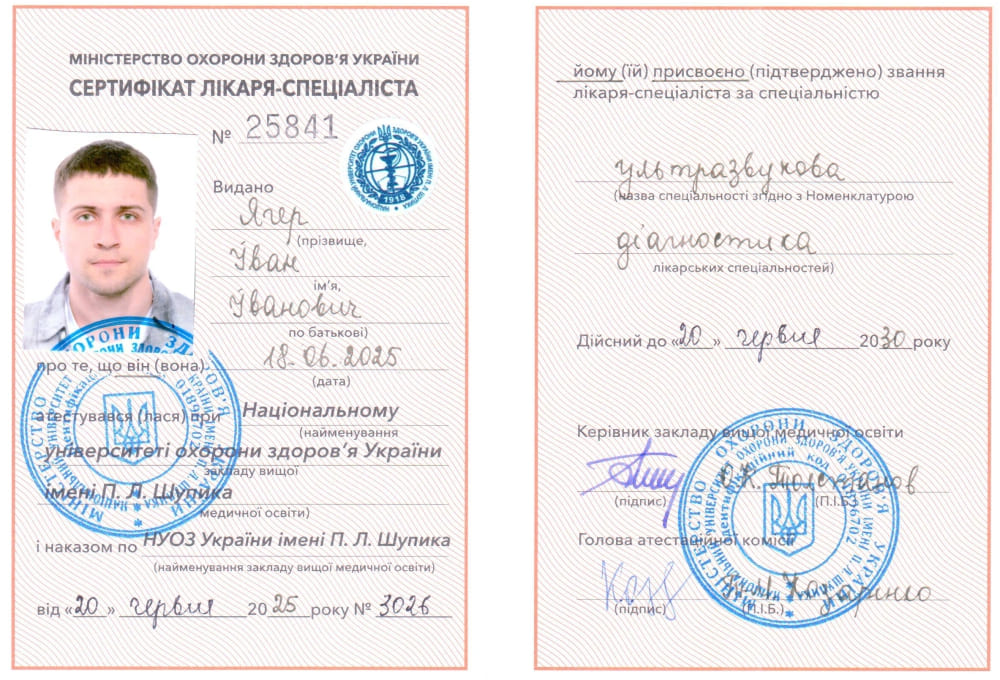 МІНІСТЕРСТВО ОХОРОНИ ЗДОРОВ'Я УКРАЇНИ
СЕРТИФІКАТ ЛІКАРЯ-СПЕЦІАЛІСТА
№ 25841
1918
Видано
Ягер
(прізвище,
Іван
ім'я,
Іванович
по батькові)
18.06.2025
(дата)
про те, що він (вона)
атестувався (лася) при Національному
(найменування
університеті охорони здоров'я України
закладу вищої
імені П. Л. Шупика
медичної освіти)
і наказом по НУОЗ України імені П. Л. Шупика
(найменування закладу вищої медичної освіти)
від «20» червня 2025 року № 3026
йому (їй) присвоєно (підтверджено) звання
лікаря-спеціаліста за спеціальністю
ультразвукова
(назва спеціальності згідно з Номенклатурою
діагностика
лікарських спеціальностей)
Дійсний до «20» червня 2030 року
Керівник закладу вищої медичної освіти
(підпис) (П.І.Б.)
Голова атестаційної комісії
(підпис) (П.І.Б.)